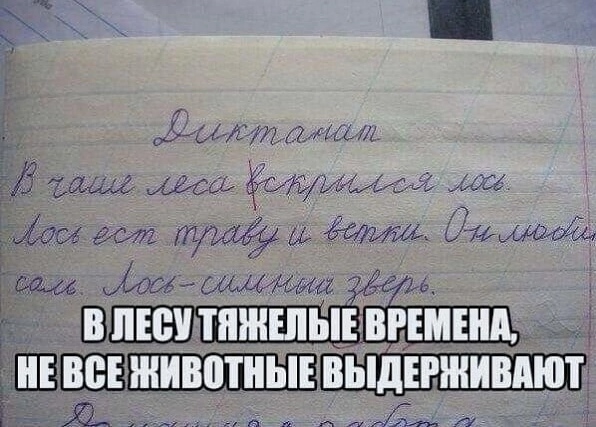 Диктанат
В чаше леса вскрылся лось.
Лось ест траву и ветки. Он люби
соль. Лось-сильный зверь.
В ЛЕСУ ТЯЖЕЛЫЕ ВРЕМЕНА,
НЕ ВСЕ ЖИВОТНЫЕ ВЫДЕРЖИВАЮТ